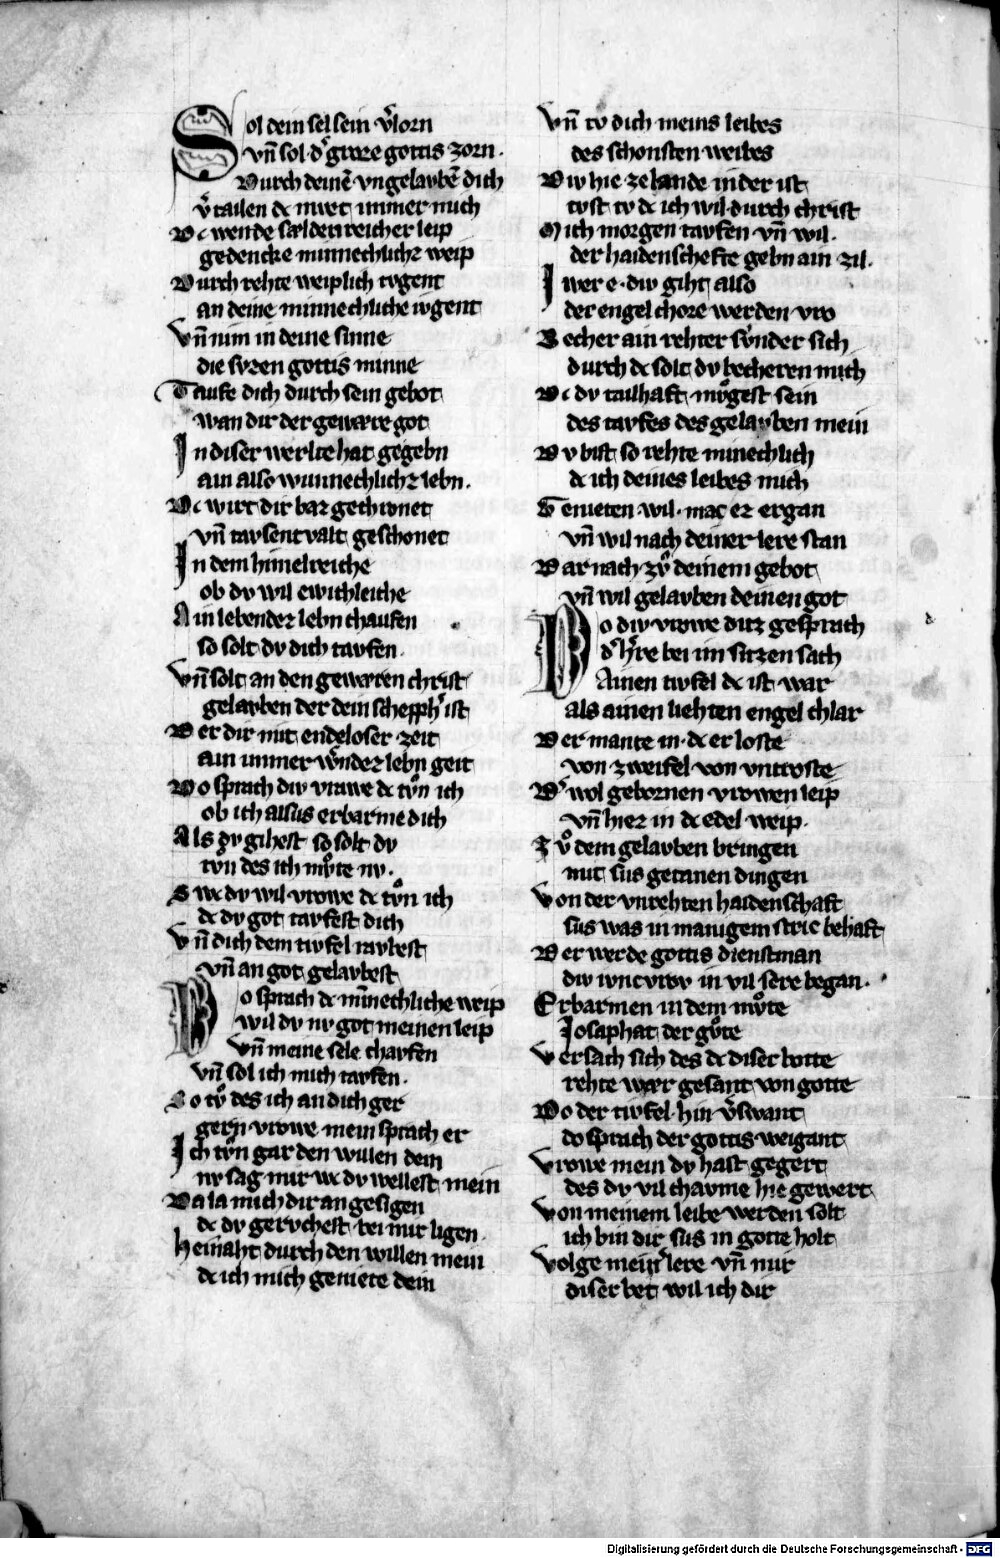 Sol dein sel sein v͛lorn
vn̄ sol d͛ groze gottis zorn.
Durch deinē vngelaubē dich
v͛tailen dc muet immer mich
Dc wende sælden reicher leip
gedencke minnechlichz weip
Durch rehte weiplich tvgent
an deine minnechliche ivgent
Vn̄ nim in deine sinne
die svzen gottis minne
Taufe dich durch sein gebot
wan dir der gewære got
In diser werlte hat gegebn
ain also wunnechlichz lebn.
Dc wirt dir baz gechronet
vn̄ tavsent valt geschonet
In dem himelreiche
ob dv wil ewichleiche
Ain lebendez lebn chaufen
so solt dv dich tavfen.
Vn̄ solt an den gewæren christ
gelavben der dein schepph͛ ist
Der dir mit endeloser zeit
ain immer w͛ndez lebn geit
Do sprach div vrawe dc tv̊n ich
ob ich alsus erbarme dich
Als dv gihest so solt dv
tv̊n des ich mv̊te nv.
Swc dv wil vrowe dc tv̊n ich
dc dv got tavfest dich
Vn̄ dich dem tivfel ravbest
vn̄ an got gelavbest
Do sprach dc mīnechliche weip
wil dv nv got meinen leip
Vn̄ meine sele chavfen
vn̄ sol ich mich tavfen.
So tv̊ des ich an dich ger
gern vrowe mein sprach er
Ich tv̊n gar den willen dein
nv sag mir wc dv wellest mein
Da la mich dir an gesigen
dc dv gervchest bei mir ligen.
Heinaht durch den willen mein
dc ich mich geniete dein
Vn̄ tv dich meins leibes
des schonsten weibes
Div hie ze lande inder ist
tvst tv dc ich wil durch christ
Mich morgen tavfen vn̄ wil.
der haidenschefte gebn ain zil.
Iwer e. div giht also
der engel chore werden vro
Becher ain rehter svnder sich
durch dc solt dv becheren mich
Dc dv tailhaft mv̊gest sein
des tavfes des gelavben mein
Dv bist so rehte minechlich
dc ich deines leibes mich
Genieten wil. mac ez ergan
vn̄ wil nach deiner lere stan
Dar nach zv̊ deinem gebot
vn̄ wil gelavben deinen got
Do div vrowe ditz gesprach
d͛ h͛re bei im sitzen sach
Ainen tivfel dc ist war
als ainen liehten engel chlar
Der mante in. dc er loste
von zweifel von vntroste
D͛ wol gebornen vrowen leip
vn̄ hiez in dc edel weip.
Zv̊ dem gelavben bringen
mit sus getanen dingen
Von der vnrehten haidenschaft
sus was in manigem stric behaft
Der werde gottis dienstman
div ivncvrov in vil sere began.
Erbarmen in dem mv̊te
Josaphat der gv̊te
Versach sich des dc diser botte
rehte wær gesant von gotte
Do der tivfel hin v͛swant
do sprach der gottis weigant
Vrowe mein dv hast gegert
des dv vil chavme hie gewert
Von meinem leibe werden solt
ich bin dir sus in gotte holt
Volge mein͛ lere vn̄ mir
diser bet wil ich dir
Digitalisierung gefördert durch die Deutsche Forschungsgemeinschaft - DFG